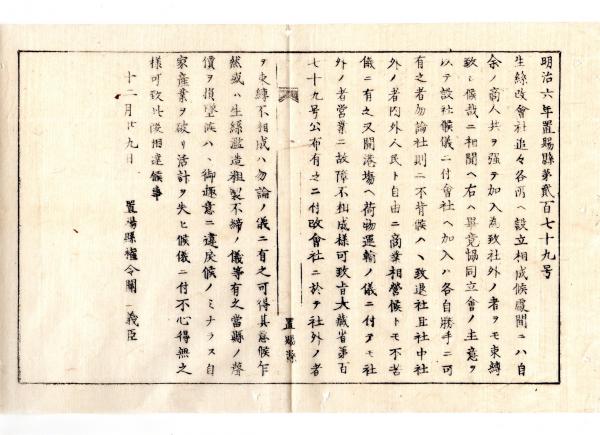 明治六年置賜縣第貳百七十九号
生絲改會社追々各所ヘ設立相成候處間ニハ自
余ノ商人共ヲ強テ加入為致社外ノ者ヲモ束縛
致シ候哉ニ相聞ヘ右ハ畢竟協同立會ノ主意ヲ
以テ設社候儀ニ付會社ヘ加入ハ各自勝手ニ可
有之者勿論社則ニ不背候ハヽ致退社且社中社
外ノ者内外人民ト自由ニ商業相營候トモ不苦
儀ニ有之又開港場ヘ荷物運輸ノ儀ニ付テモ社
外ノ者營業ニ故障不相成様可致旨大藏省第百
七十九号公布有之ニ付改會社ニ於テ社外ノ者
置賜縣
ヲ束縛不相成ハ勿論ノ儀ニ有之可得其意候乍
然或ハ生絲濫造粗製不締ノ儀等有之當縣ノ聲
價ヲ損墜候ハヽ御趣意ニ違戻候ノミナラス自
家産業ヲ破リ活計ヲ失ヒ候儀ニ付不心得無之
様可致此段相達候事
十二月廿九日
置賜縣權令關義臣